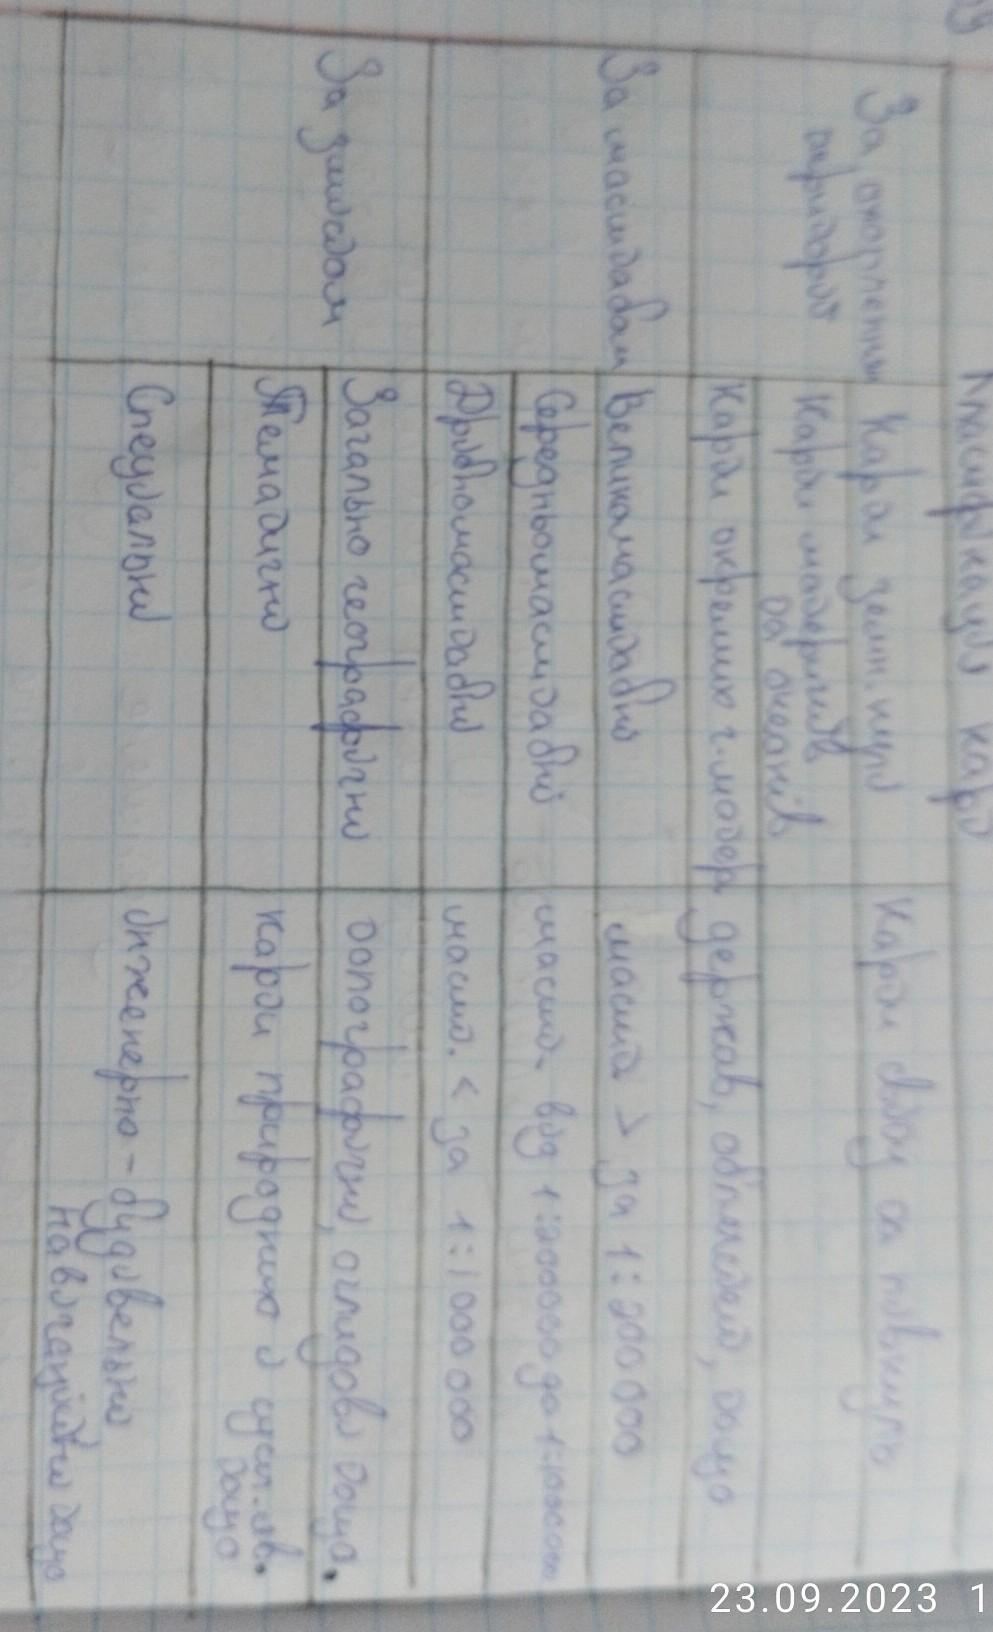 Класифікація карт
За охопленням
території
Карти земн. кулі
Карти світу та півкуль
Карти материків
та океанів
Карти окремих ч. матер
держав, областей, тощо
За масштабом
Великомасштабні
масшт > за 1:200 000
Середньомасштабні
масшт. від 1:200000 до 1:1000000
Дрібномасштабні
масшт. < за 1:1000 000
За змістом
Загально географічні
топографічні, оглядові тощо.
Тематичні
карти природних і сусп. яв.
тощо
Спеціальні
інженерно-будівельні
навігаційні тощо
23.09.2023 1